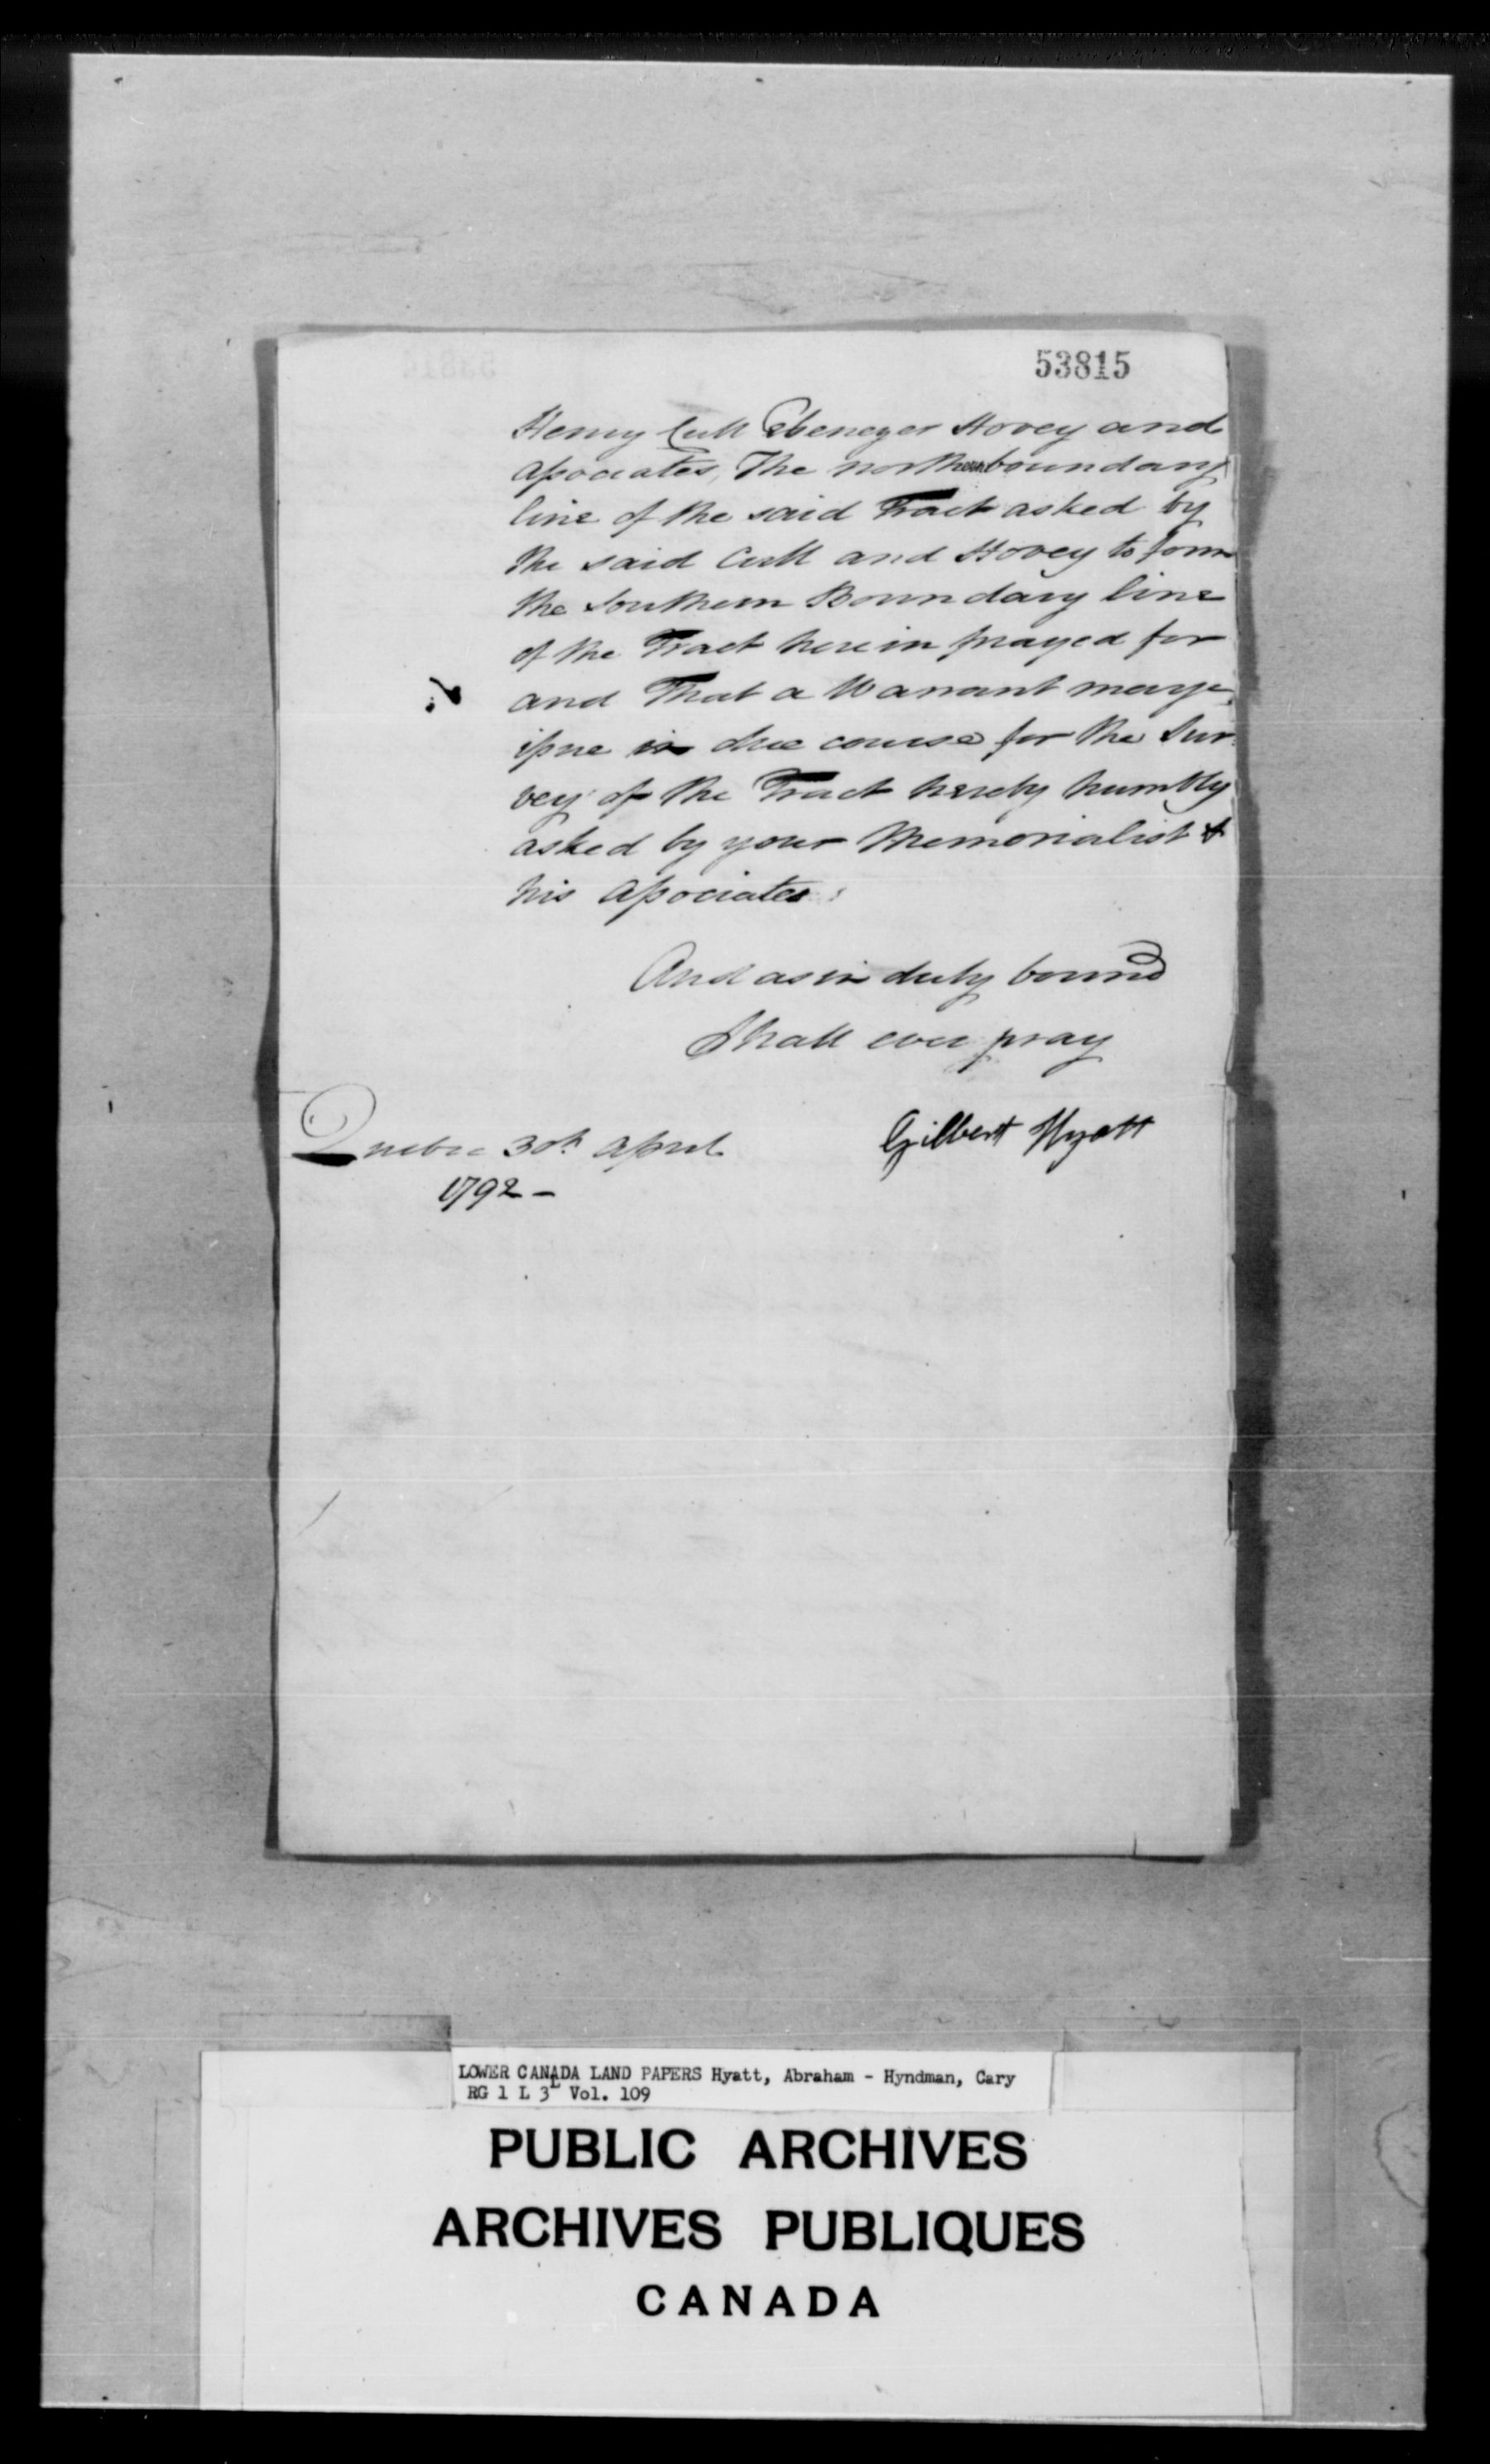 53815
Henry Cull Ebenezer Hovey and
Associates, The northern boundary
line of the said Tract asked by
the said Cull and Hovey to form
the Southern Boundary line
of the Tract herein prayed for
and That a Warrant may
issue in due course for the Sur
vey of the Tract hereby humbly
asked by your Memorialist &
his Associates
And as in duty bound
Shall ever pray
Gilbert Hyatt
Quebec 30th April
1792 -
LOWER CANADA LAND PAPERS Hyatt, Abraham - Hyndman, Cary
RG 1 L 3L Vol. 109
PUBLIC ARCHIVES
ARCHIVES PUBLIQUES
CANADA